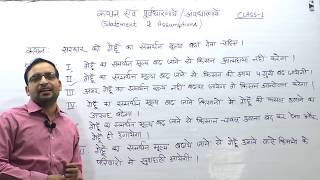 कथन एवं पूर्वधारणायें/अवधारणायें CLASS-1
(Statement & Assumptions)
कथन: सरकार को गेहूँ का समर्थन मूल्य बढ़ा देना चाहिए।
I. गेहूँ का समर्थन मूल्य बढ़ जाने से किसान आत्महत्या नहीं करेगा।
II. गेहूँ का समर्थन मूल्य बढ़ जाने से किसान की आय
III. गेहूँ का समर्थन मूल्य नहीं किसान आन्दोलन करेगा।
IV. गेहूँ का समर्थन मूल्य बढ़ जाने किसानों में गेहूँ की फसल उगाने का
उत्साह बढ़ेगा।
गेहूँ का समर्थन मूल्य बढ़ जाने से किसान चावल उगाना बंद कर देगा और
गेहूँ ही उगायेगा।
गेहूँ का समर्थन मूल्य बढ़ाये जाने से गेहूँ उगाने वाले किसान के
परिवारों में खुशहाली आयेगी।